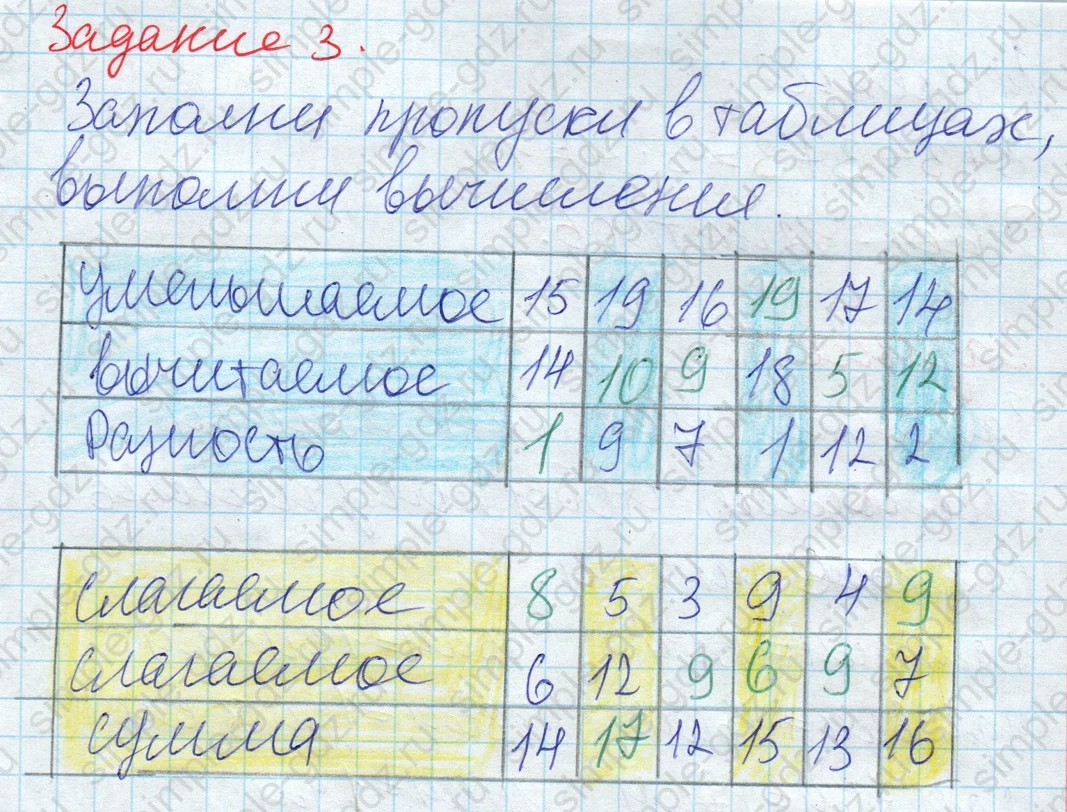 Задание 3.
Заполни пропуски в таблицах,
выполни вычисления.
уменьшаемое 15 19 16 19 17 14
вычитаемое 14 10 9 18 5 12
Разность 1 9 7 1 12 2
слагаемое 8 5 3 9 4 9
слагаемое 6 12 9 6 9 7
сумма 14 17 12 15 13 16
simple-gdz.ru